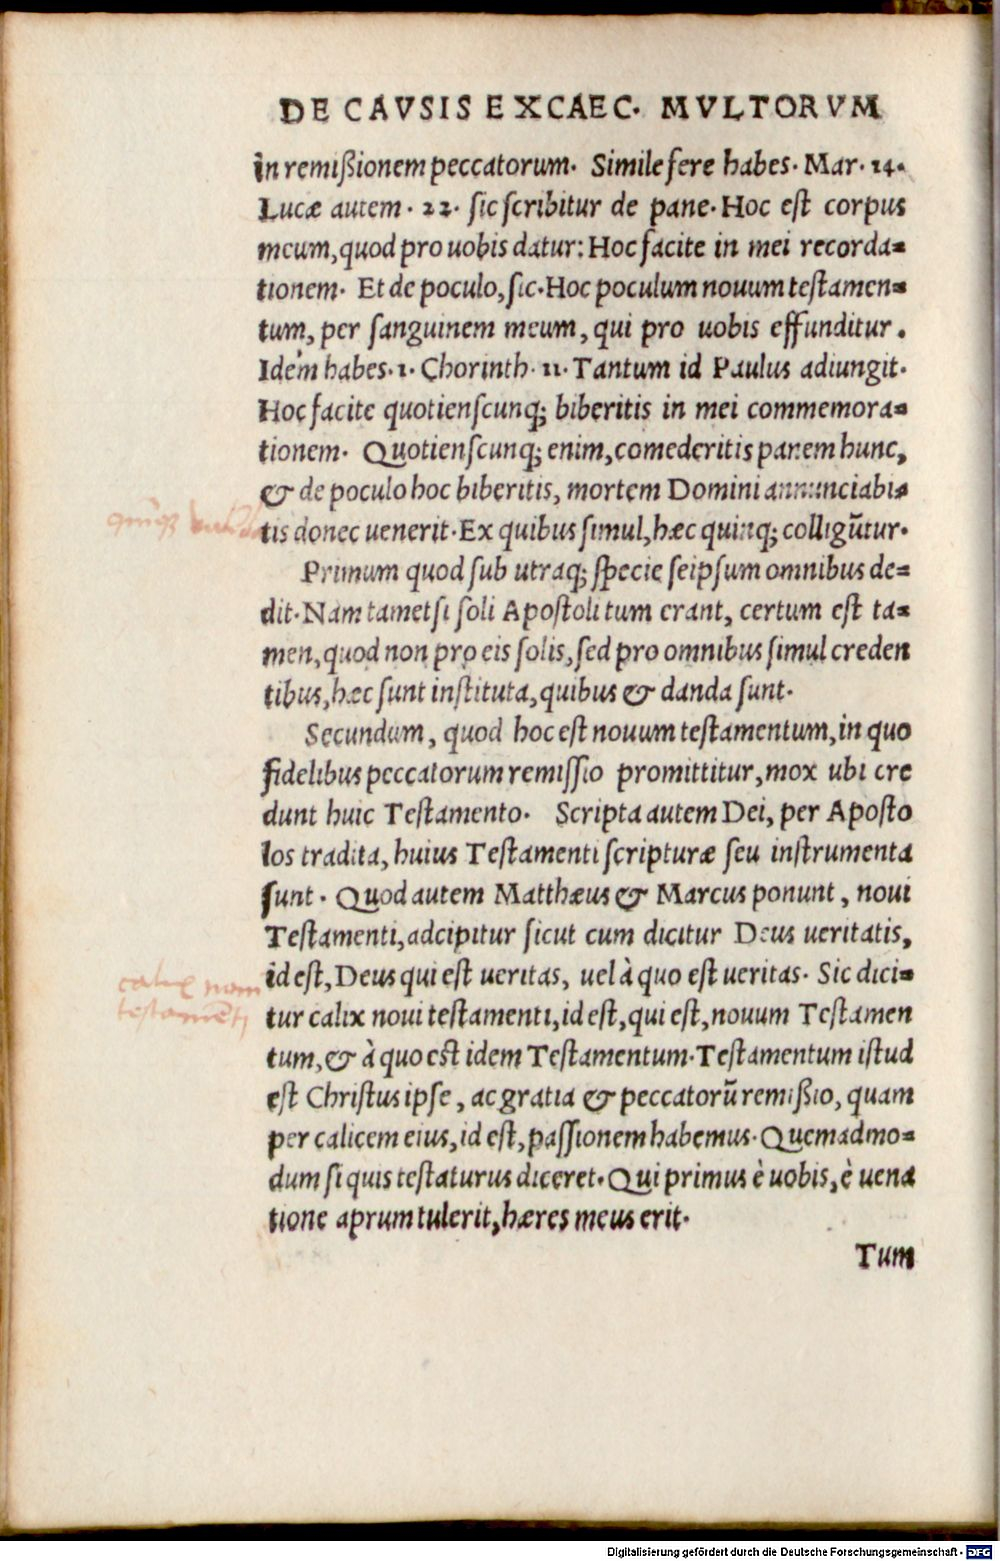 DE CAVSIS EXCAEC. MVLTORVM
in remißionem peccatorum. Simile fere habes. Mar. 14.
Lucæ autem. 22. sic scribitur de pane. Hoc est corpus
meum, quod pro uobis datur: Hoc facite in mei recorda=
tionem. Et de poculo, sic. Hoc poculum nouum testamen=
tum, per sanguinem meum, qui pro uobis effunditur.
Idem habes. 1. Chorinth. 11. Tantum id Paulus adiungit.
Hoc facite quotienscunq; biberitis in mei commemora=
tionem. Quotienscunq; enim, comederitis panem hunc,
& de poculo hoc biberitis, mortem Domini annunciabi=
tis donec uenerit. Ex quibus simul, hæc quinq; colligũtur.
Primum quod sub utraq; specie seipsum omnibus de=
dit. Nam tametsi soli Apostoli tum erant, certum est ta=
men, quod non pro eis solis, sed pro omnibus simul creden
tibus, hæc sunt instituta, quibus & danda sunt.
Secundum, quod hoc est nouum testamentum, in quo
fidelibus peccatorum remissio promittitur, mox ubi cre
dunt huic Testamento. Scripta autem Dei, per Aposto
los tradita, huius Testamenti scripturæ seu instrumenta
sunt. Quod autem Matthæus & Marcus ponunt, noui
Testamenti, adcipitur sicut cum dicitur Deus ueritatis,
calix noui
id est, Deus qui est ueritas, uel à quo est ueritas. Sic dici=
testamẽti
tur calix noui testamenti, id est, qui est, nouum Testamen
tum, & à quo est idem Testamentum. Testamentum istud
est Christus ipse, ac gratia & peccatorũ remißio, quam
per calicem eius, id est, passionem habemus. Quemadmo=
dum si quis testaturus diceret. Qui primus è uobis, è uena
tione aprum tulerit, hæres meus erit.
Tum
Digitalisierung gefördert durch die Deutsche Forschungsgemeinschaft - DFG